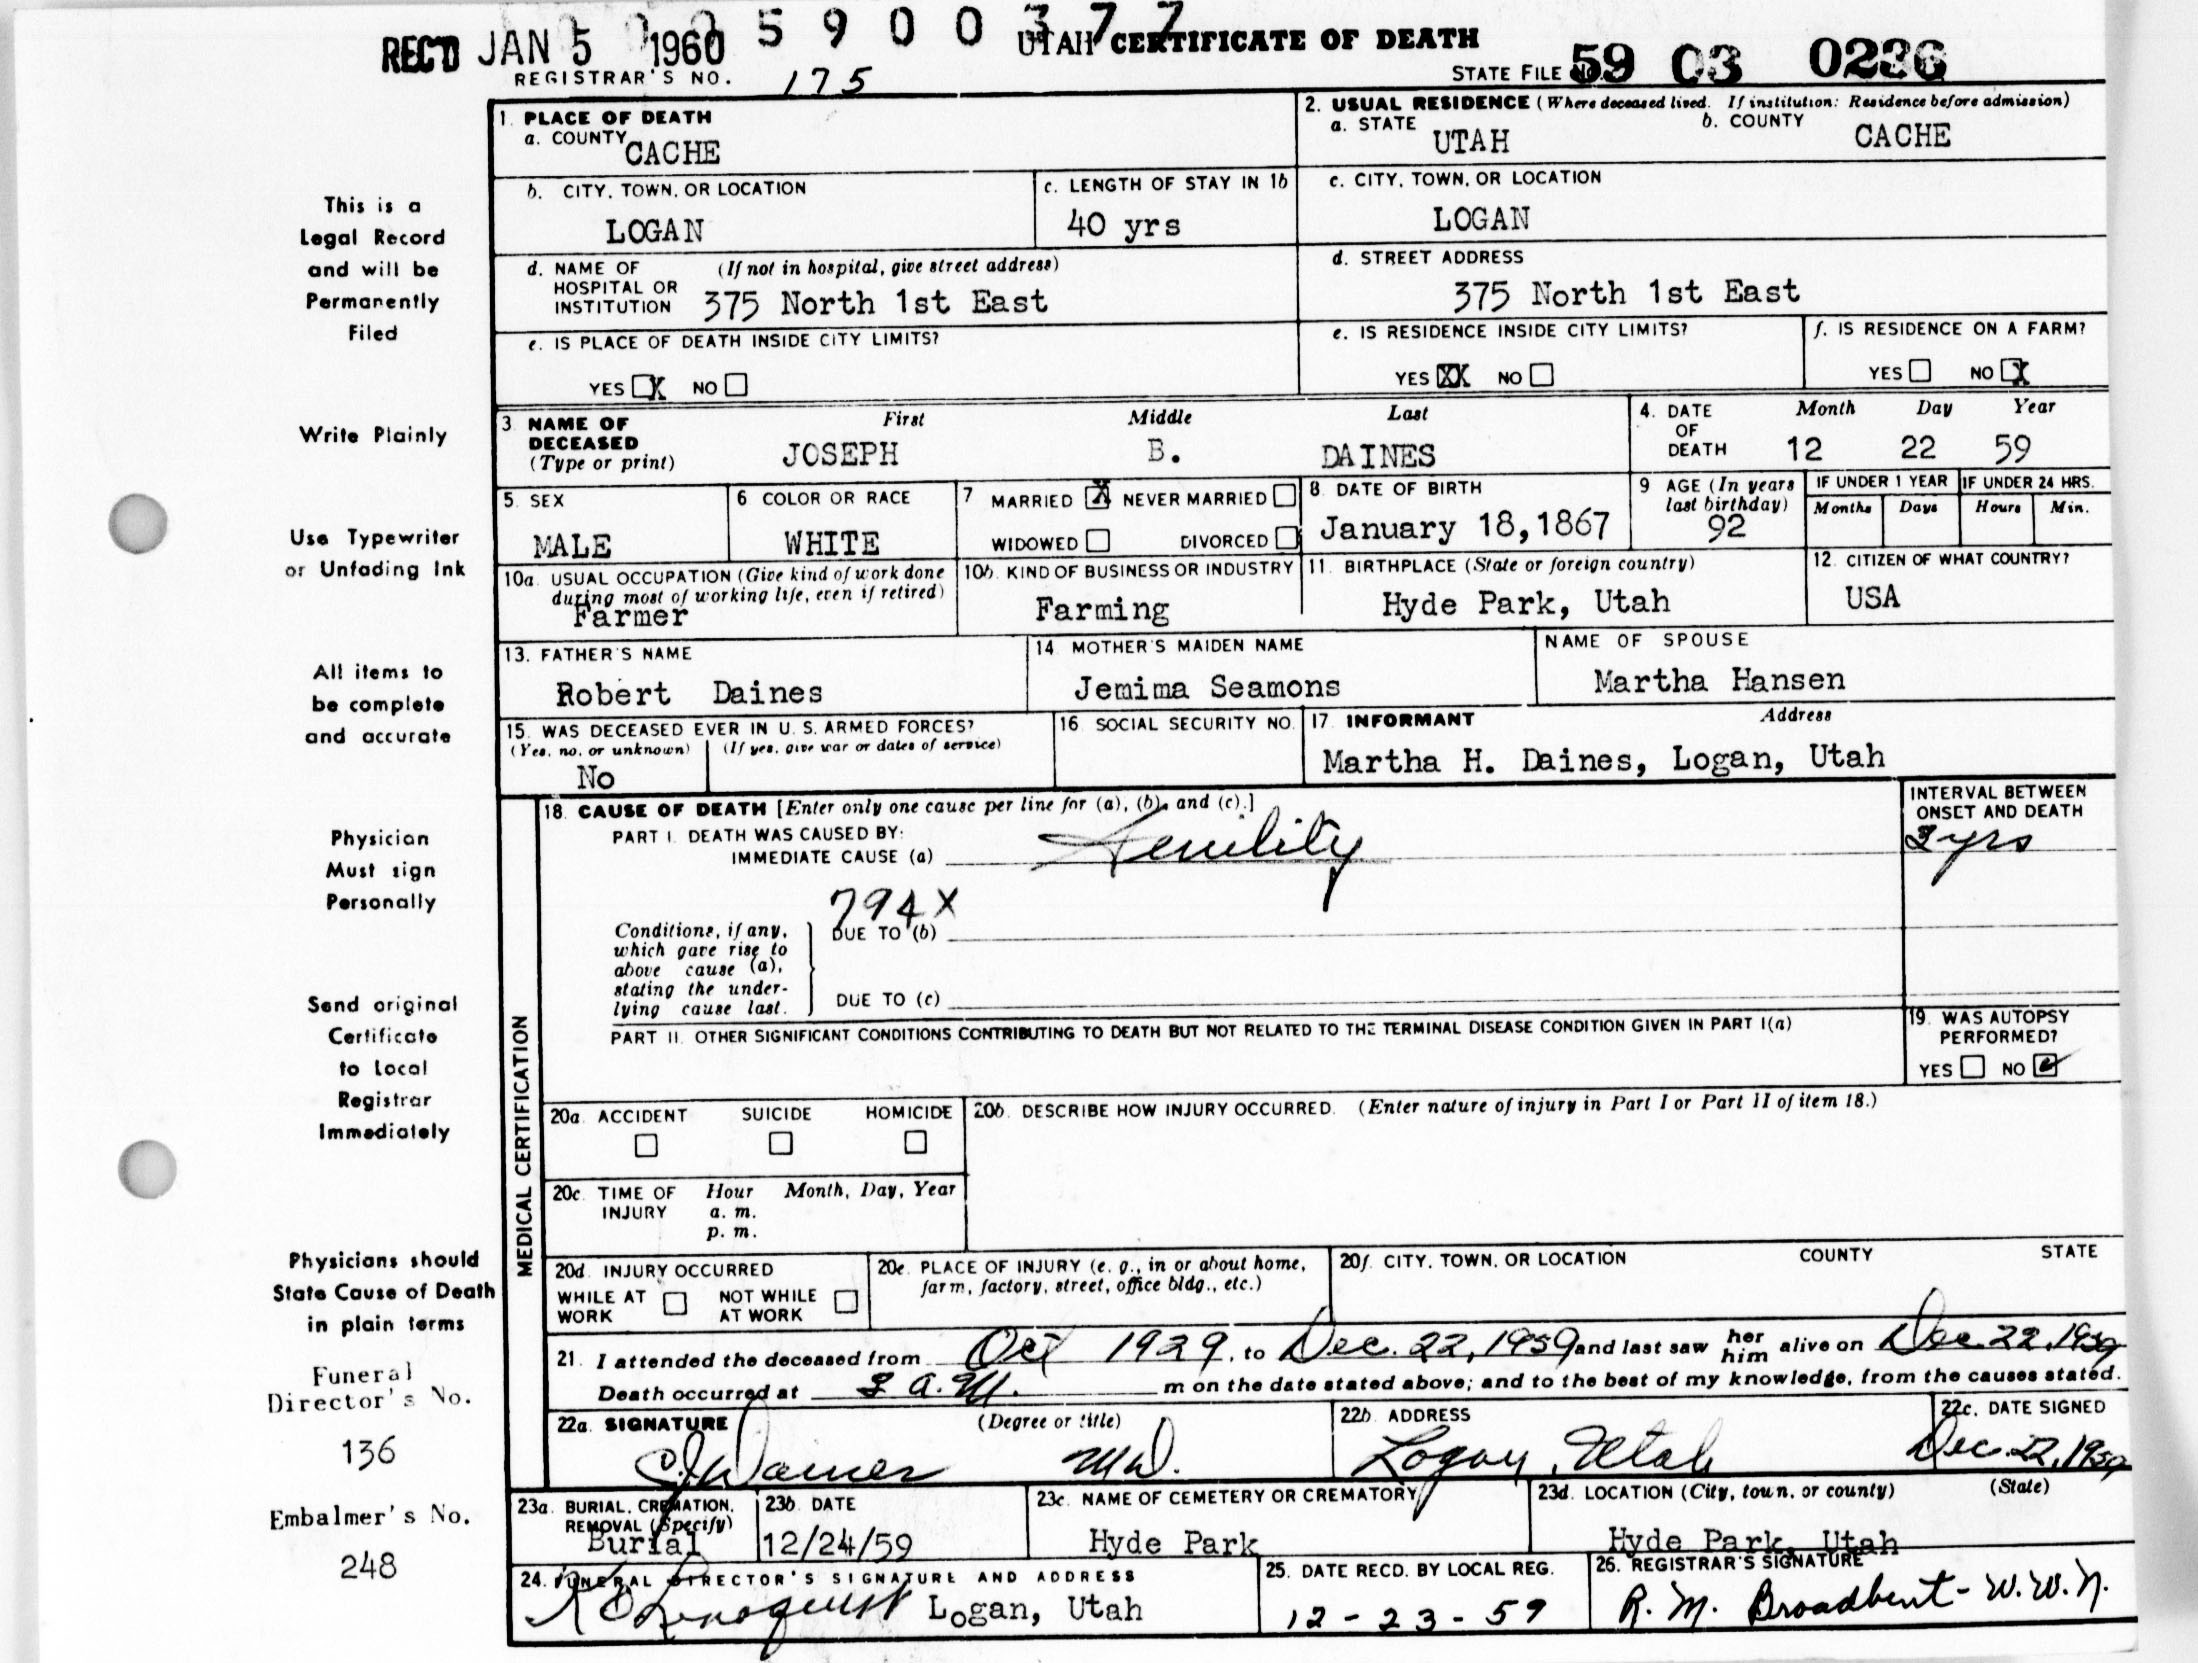 REC'D JAN 5 1960 5 9 0 0 3 7 7
UTAH CERTIFICATE OF DEATH
REGISTRAR'S NO. 175
STATE FILE NO. 59 03 0236
This is a
Legal Record
and will be
Permanently
Filed
Write Plainly
Use Typewriter
or Unfading Ink
All items to
be complete
and accurate
Physician
Must sign
Personally
Send original
Certificate
to Local
Registrar
Immediately
Physicians should
State Cause of Death
in plain terms
Funeral
Director's No.
136
Embalmer's No.
248
1. PLACE OF DEATH
a. COUNTY CACHE
2. USUAL RESIDENCE (Where deceased lived. If institution: Residence before admission)
a. STATE UTAH b. COUNTY CACHE
b. CITY, TOWN, OR LOCATION
LOGAN
c. LENGTH OF STAY IN 1b
40 yrs
c. CITY, TOWN, OR LOCATION
LOGAN
d. NAME OF (If not in hospital, give street address)
HOSPITAL OR
INSTITUTION 375 North 1st East
d. STREET ADDRESS
375 North 1st East
e. IS PLACE OF DEATH INSIDE CITY LIMITS?
YES X NO
e. IS RESIDENCE INSIDE CITY LIMITS?
YES XX NO
f. IS RESIDENCE ON A FARM?
YES NO X
3. NAME OF DECEASED (Type or print)
First Middle Last
JOSEPH B. DAINES
4. DATE OF DEATH
Month Day Year
12 22 59
5. SEX
MALE
6. COLOR OR RACE
WHITE
7. MARRIED X NEVER MARRIED
WIDOWED DIVORCED
8. DATE OF BIRTH
January 18, 1867
9. AGE (In years
last birthday)
92
IF UNDER 1 YEAR
Months Days
IF UNDER 24 HRS.
Hours Min.
10a. USUAL OCCUPATION (Give kind of work done
during most of working life, even if retired)
Farmer
10b. KIND OF BUSINESS OR INDUSTRY
Farming
11. BIRTHPLACE (State or foreign country)
Hyde Park, Utah
12. CITIZEN OF WHAT COUNTRY?
USA
13. FATHER'S NAME
Robert Daines
14. MOTHER'S MAIDEN NAME
Jemima Seamons
NAME OF SPOUSE
Martha Hansen
15. WAS DECEASED EVER IN U. S. ARMED FORCES?
(Yes, no, or unknown) (If yes, give war or dates of service)
No
16. SOCIAL SECURITY NO.
17. INFORMANT Address
Martha H. Daines, Logan, Utah
MEDICAL CERTIFICATION
18. CAUSE OF DEATH [Enter only one cause per line for (a), (b), and (c).]
PART I. DEATH WAS CAUSED BY:
IMMEDIATE CAUSE (a) Senility
INTERVAL BETWEEN
ONSET AND DEATH
yrs
794X
Conditions, if any,
which gave rise to
above cause (a),
stating the under-
lying cause last.
DUE TO (b)
DUE TO (c)
PART II. OTHER SIGNIFICANT CONDITIONS CONTRIBUTING TO DEATH BUT NOT RELATED TO THE TERMINAL DISEASE CONDITION GIVEN IN PART I(a)
19. WAS AUTOPSY
PERFORMED?
YES NO
20a. ACCIDENT SUICIDE HOMICIDE
20b. DESCRIBE HOW INJURY OCCURRED. (Enter nature of injury in Part I or Part II of item 18.)
20c. TIME OF INJURY
Hour Month, Day, Year
a. m.
p. m.
20d. INJURY OCCURRED
WHILE AT WORK NOT WHILE AT WORK
20e. PLACE OF INJURY (e. g., in or about home,
farm, factory, street, office bldg., etc.)
20f. CITY, TOWN, OR LOCATION COUNTY STATE
21. I attended the deceased from Oct 1929, to Dec. 22, 1959 and last saw her him alive on Dec. 22, 1959
Death occurred at A.M. m on the date stated above; and to the best of my knowledge, from the causes stated.
22a. SIGNATURE (Degree or title)
C J Daines MD.
22b. ADDRESS
Logan, Utah
22c. DATE SIGNED
Dec. 22, 1959
23a. BURIAL, CREMATION,
REMOVAL (Specify)
Burial
23b. DATE
12/24/59
23c. NAME OF CEMETERY OR CREMATORY
Hyde Park
23d. LOCATION (City, town, or county) (State)
Hyde Park, Utah
24. FUNERAL DIRECTOR'S SIGNATURE AND ADDRESS
Lindquist Logan, Utah
25. DATE RECD. BY LOCAL REG.
12-23-59
26. REGISTRAR'S SIGNATURE
R. M. Broadbent - W.W.N.